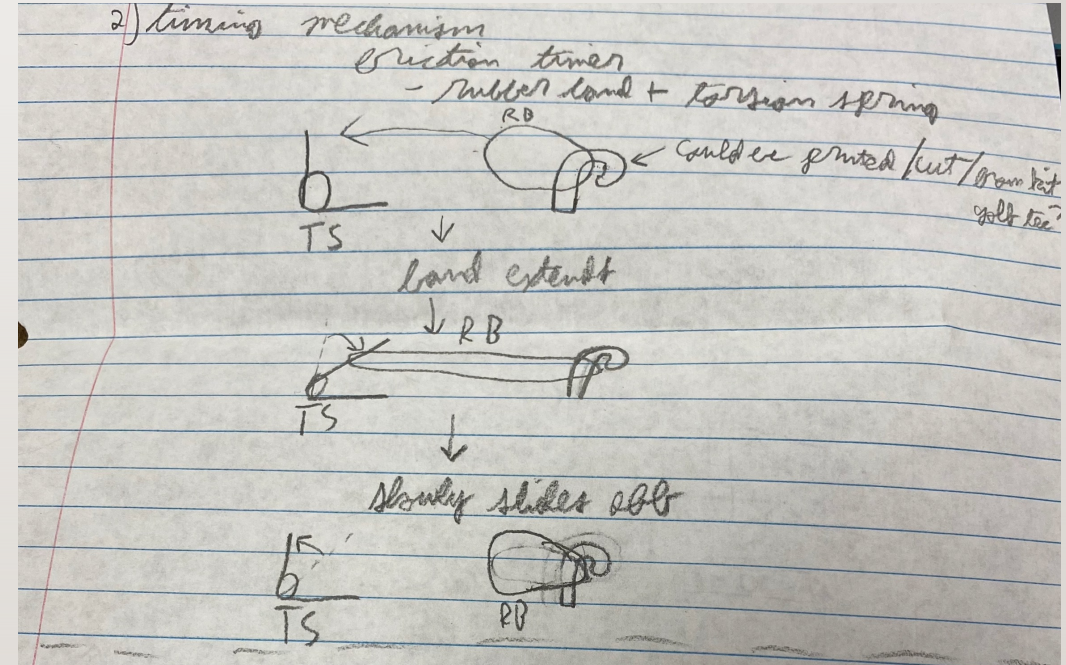 2) timing mechanism
friction timer
- rubber band + torsion spring
RB
could be printed / cut / from kit
golf tee?
TS
band extends
RB
TS
slowly slides off
TS
RB